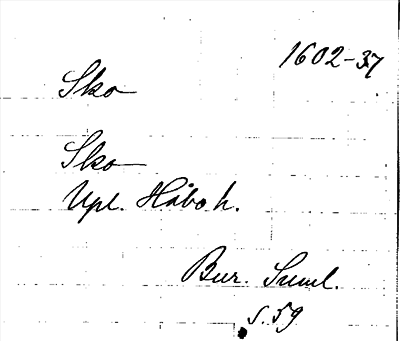 1602-37
Sko
Sko
Upl. Håbo h.
Bur. Suml.
s. 59